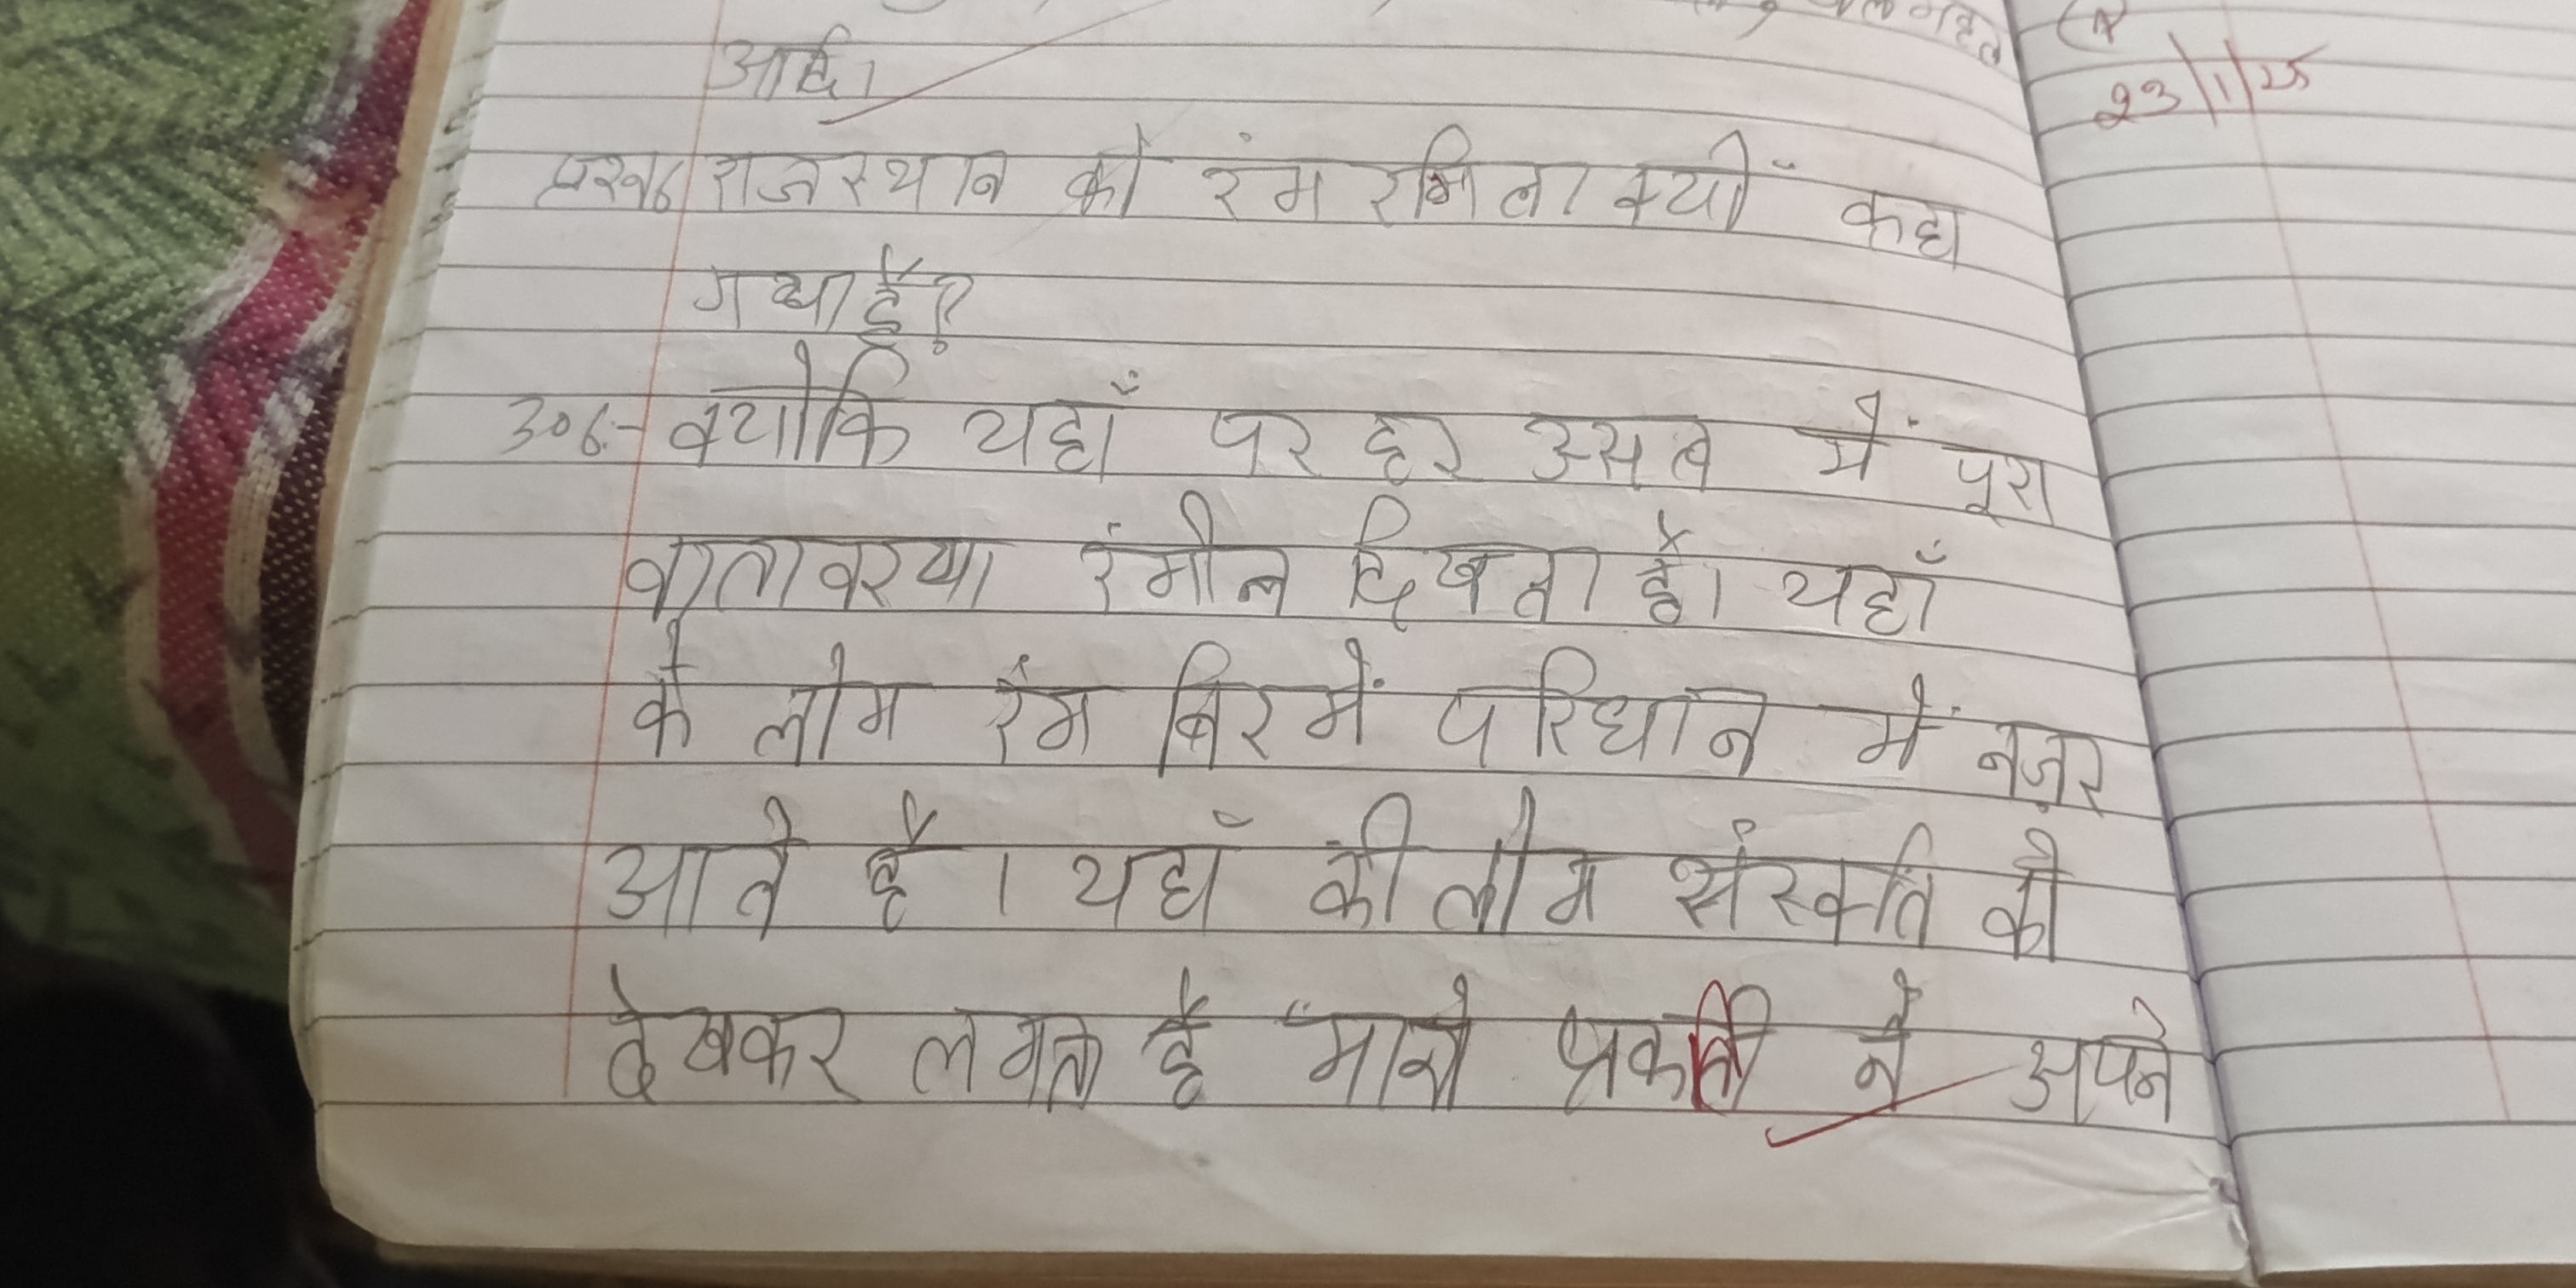 आदि।
23/1/25
प्रश्न6 राजस्थान को रंग रगिला क्यों कहा
गया है?
उ०6.- क्योकि यहाँ पर हर उत्सव में पूरा
वातावरण रंगील दिखता है। यहाँ
के लोग रंग बिरगें परिधान में नज़र
आते है। यहाँ की लोग संस्कति को
देखकर लगता है मानो प्रकर्ती ने अपने